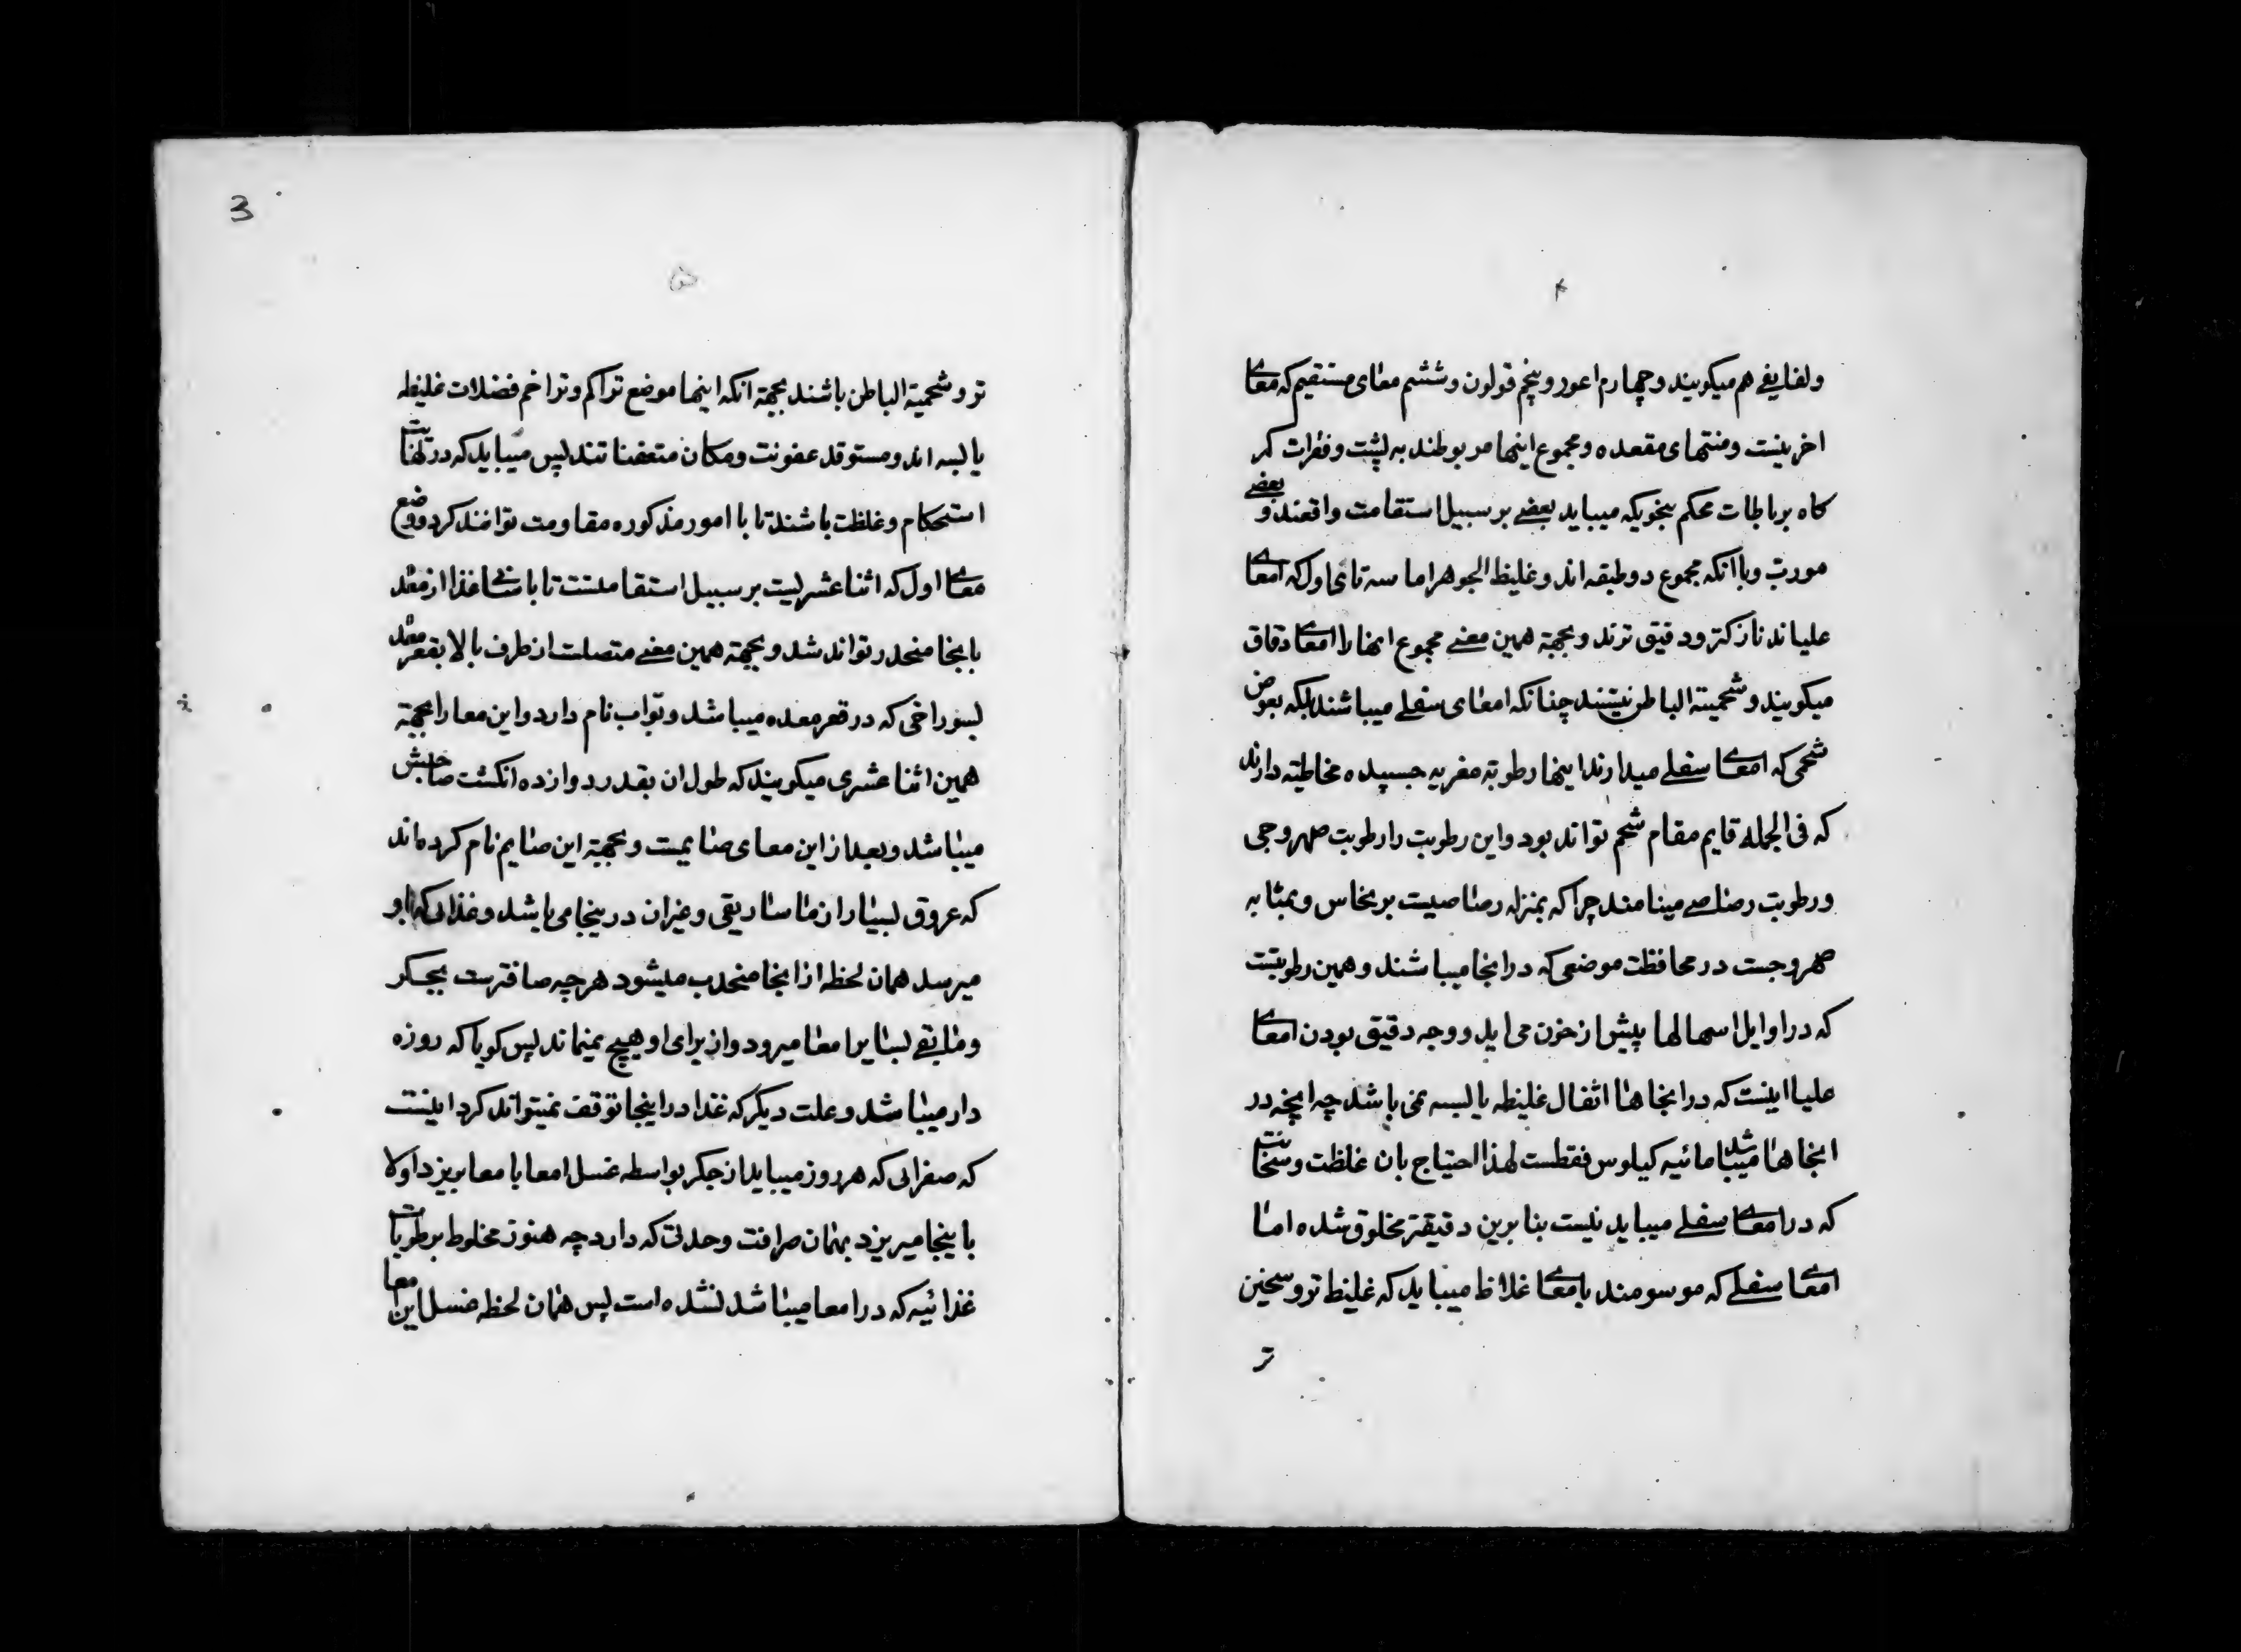 ۴
ولفایفی هم میکویند و چهارم اعور و پنجم قولون و ششم معای مستقیم که معای
اخرینست و منتهای مقعده و مجموع اینها مربوطند به پشت و فقرات کمر
کاه برباطات محکم بنحویکه میباید بعضی بر سبیل استقامت واقعند و بعضی
مورب و با آنکه مجموع دو طبقه اند و غلیظ الجوهر اما سه تای اول که امعای
علیا اند نازکتر و دقیق ترند و بجهة همین معنی مجموع اینها را امعای دقاق
میکویند و شحمیة الباطن نیستند چنانکه امعای سفلی میباشند بلکه بعوض
شحمی که امعای سفلی میدارند اینها رطوبة مغریه جسپیده مخاطیته دارند
که فی الجمله قایم مقام شحم تواند بود و این رطوبت را رطوبت صهروجی
و رطوبت رصاصی مینامند چرا که بمنزله رصاصیست بر نحاس و بمثابه
صهروجست در محافظت موضعی که در انجا میباشند و همین رطوبتست
که در اوایل اسهالها پیش از خون می اید و وجه دقیق بودن امعای
علیا اینست که در انجاها اثفال غلیظه یابسه نمی باشد چه انچه در
انجاها میباشد مائیه کیلوس فقطست لهذا احتیاج بان غلظت و سخانت
که در امعای سفلی میباید نیست بنابرین دقیقتر مخلوق شده اما
امعای سفلی که موسومند بامعای غلاظ میباید که غلیظ تر و سخین
تر
3
۵
تر و شحمیة الباطن باشند بجهة انکه اینها موضع تراکم و تراخم فضلات غلیظه
یابسه اند و مستوقد عفونت و مکان متعفناتند پس میباید که در نهایت
استحکام و غلظت باشند تا با امور مذکوره مقاومت توانند کرد و وضع
معای اول که اثنا عشریست بر سبیل استقامتست تا باسانی غذا از معده
بانجا منحدر تواند شد و بجهة همین معنی متصلت از طرف بالا بقعر معده
بسوراخی که در قعر معده میباشد و بواب نام دارد و این معا را بجهة
همین اثنا عشری میکویند که طول ان بقدر دوازده انکشت صاحبش
میباشد و بعد از این معای صایمست و بجهة این صایم نام کرده اند
که عروق بسیار از ماساریقی و غیر ان در ینجا می باشد و غذائی که باو
میرسد همان لحظه از انجا منجذب میشود هر چه صافترست بجکر
و مابقی بسایر امعا میرود و از برای او هیچ نمیماند پس کویا که روزه
دار میباشد و علت دیکر که غذا در اینجا توقف نمیتواند کرد اینست
که صفرائی که هر روز میباید از جکر بواسطه غسل امعا بامعا بریزد اولا
باینجا میریزد بهمان صرافت و حدتی که دارد چه هنوز مخلوط برطوبات
غذائیه که در امعا میباشد نشده است پس همان لحظه غسل این معا